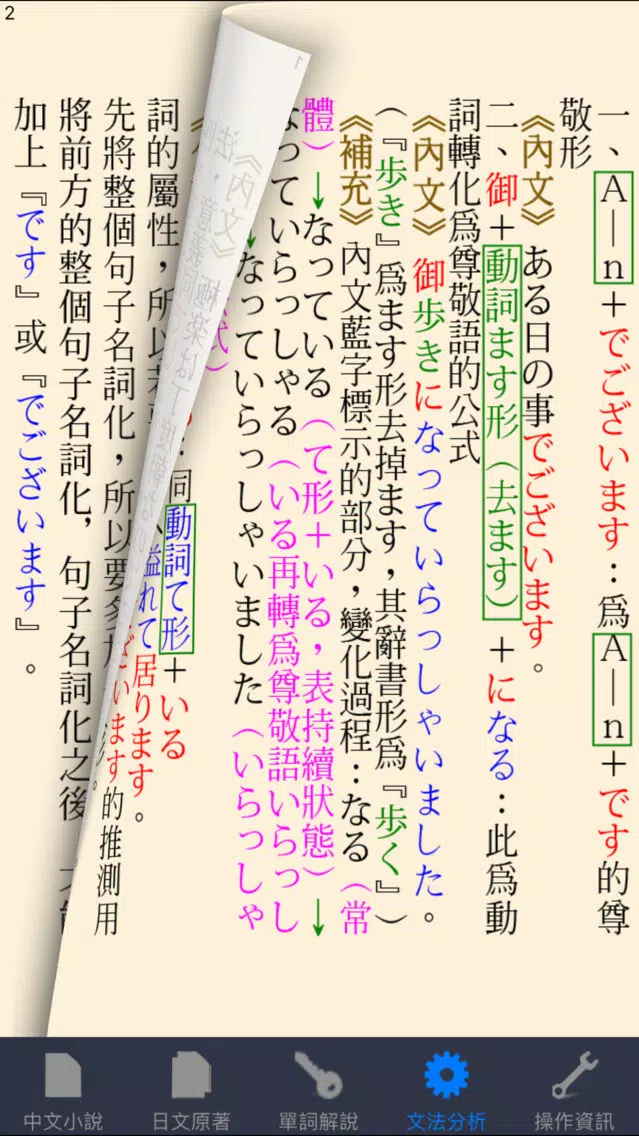 2
一、A—n＋でございます：爲A—n＋です的尊
敬形
《內文》 ある日の事でございます。
二、御＋動詞ます形（去ます）＋になる：此爲動
詞轉化爲尊敬語的公式
《內文》御歩きになっていらっしゃいました。
（『歩き』爲ます形去掉ます，其辭書形爲『歩く』）
《補充》內文藍字標示的部分，變化過程：なる（常
體）↓なっている（て形＋いる，表持續狀態）↓
なっていらっしゃる（いる再轉爲尊敬語いらっし
↓なっていらっしゃいました（いらっしゃ
同動詞て形＋いる
溢れて居ります。
詞的屬性，所以
ざいます的推測用
先將整個句子名詞化，所以要
將前方的整個句子名詞化，句子名詞化之後
加上『です』或『でございます』。
中文小說
日文原著
單詞解說
文法分析
操作資訊